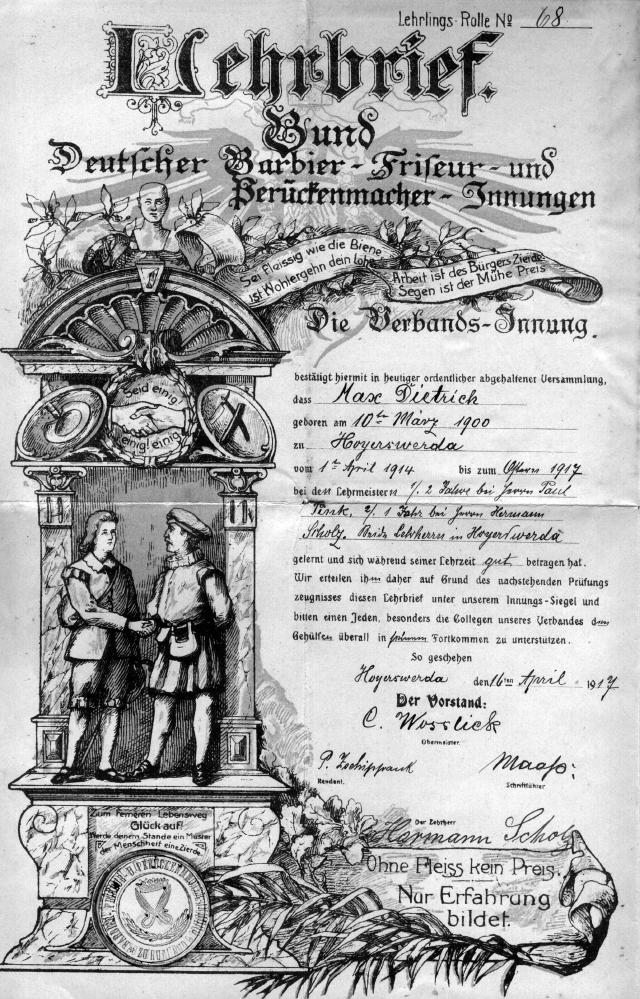 Lehrlings-Rolle № 68
Lehrbrief.
Bund
Deutscher Barbier-Friseur- und
Perückenmacher-Innungen
Sei fleissig wie die Biene
ist Wohlergehn dein Lohn
Arbeit ist des Bürgers Zierde
Segen ist der Mühe Preis
Die Verbands-Innung.
bestätigt hiermit in heutiger ordentlicher abgehaltener Versammlung,
dass Max Dietrich
geboren am 10ten März 1900
zu Hoyerswerda
vom 1ten April 1914 bis zum Ostern 1917
bei den Lehrmeistern 1/. 2 Jahre bei Herrn Paul
2/. 1 Jahr bei Herrn Hermann
Scholz. Beide Lehrherrn in Hoyerswerda
gelernt und sich während seiner Lehrzeit gut betragen hat.
Wir erteilen ihm daher auf Grund des nachstehenden Prüfungs
zeugnisses diesen Lehrbrief unter unserem Innungs-Siegel und
bitten einen Jeden, besonders die Collegen unseres Verbandes den
Gehülfen überall in seinem Fortkommen zu unterstützen.
So geschehen
Hoyerswerda den 16ten April 1917
Der Vorstand:
C. Wosslick
Obermeister.
P. Zschipprank
Rendant.
Maass
Schriftführer
Der Lehrherr
Hermann Scholz
Seid einig!
einig! einig
Zum ferneren Lebensweg
Glück auf!
Werde deinem Stande ein Muster
der Menschheit eine Zierde.
Ohne Fleiss kein Preis.
Nur Erfahrung
bildet.